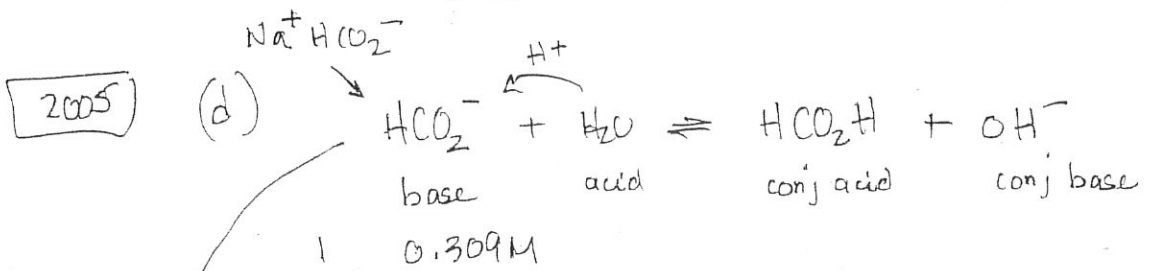 Na⁺HCO₂⁻
H+
2005 (d) HCO₂⁻ + H₂O ⇌ HCO₂H + OH⁻
base acid conj acid conj base
I 0.309M